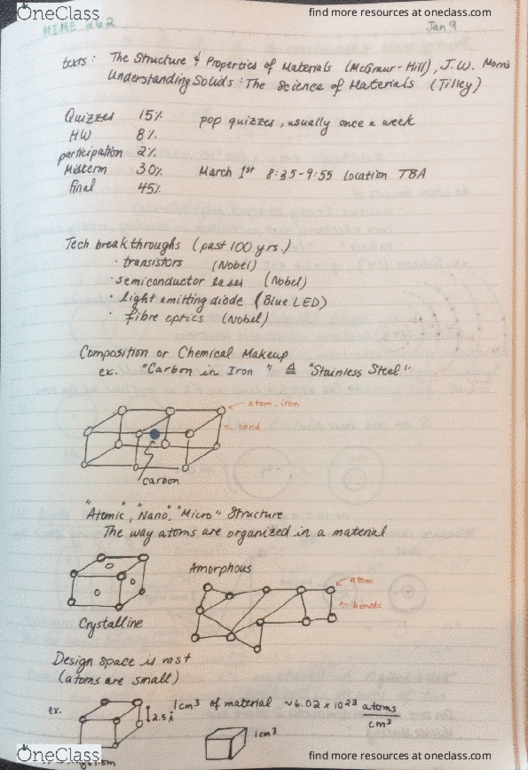 OneClass
find more resources at oneclass.com
MIME 262
Jan 9
texts: The Structure & Properties of Materials (McGraw-Hill), J.W. Morris
Understanding Solids: The Science of Materials (Tilley)
Quizzes 15% pop quizzes, usually once a week
HW 8%
participation 2%
Midterm 30% March 1st 8:35-9:55 Location TBA
final 45%
Tech breakthroughs (past 100 yrs.)
· transistors (Nobel)
· semiconductor laser (Nobel)
· light emitting diode (Blue LED)
· fibre optics (Nobel)
Composition or Chemical Makeup
ex. "Carbon in Iron" ≙ "Stainless Steel"
atom, iron
bond
carbon
"Atomic", "Nano", "Micro" Structure
The way atoms are organized in a material
Amorphous
atom
bonds
Crystalline
Design space is vast
(atoms are small)
ex. 2.5 Å 1cm³ of material ~6.02 x 10²³ atoms/cm³
1cm³
OneClass
find more resources at oneclass.com